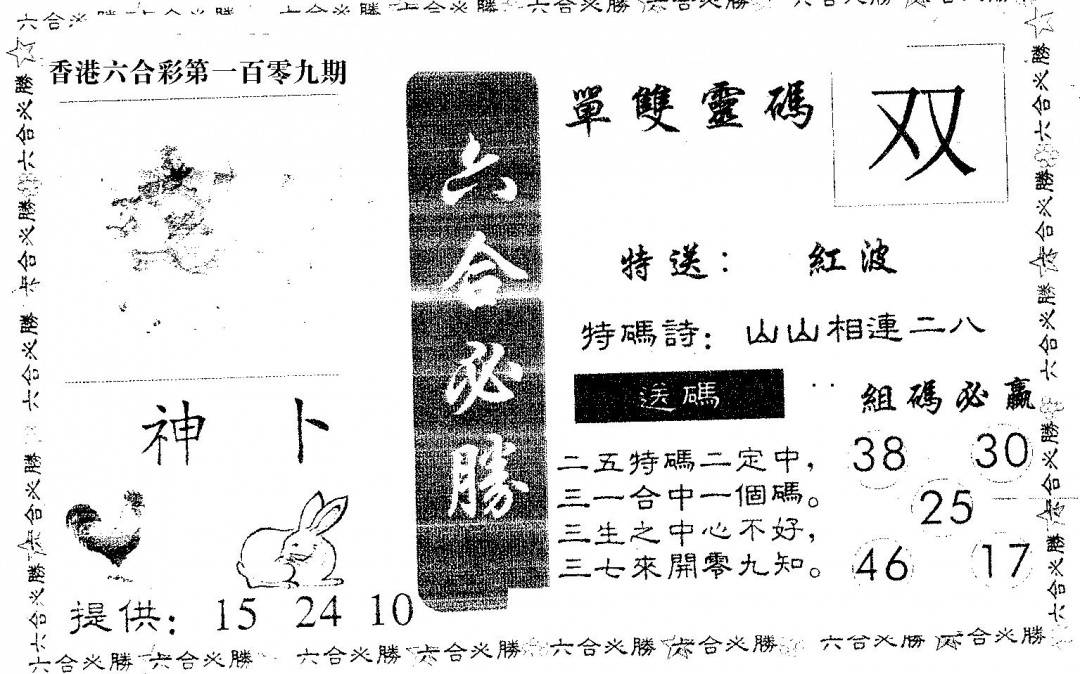 六合必勝 六合必勝 六合必勝 六合必勝 六合必勝 六合必勝 六合必勝 六合必勝
香港六合彩第一百零九期
神卜
提供：15 24 10
六合必勝
單雙靈碼
双
特送：紅波
特碼詩：山山相連二八
送碼
二五特碼二定中，
三一合中一個碼。
三生之中心不好，
三七來開零九知。
組碼必贏
38 30
25
46 17
六合必勝 六合必勝 六合必勝 六合必勝 六合必勝
六合必勝 六合必勝 六合必勝 六合必勝 六合必勝
六合必勝 六合必勝 六合必勝 六合必勝 六合必勝 六合必勝 六合必勝 六合必勝